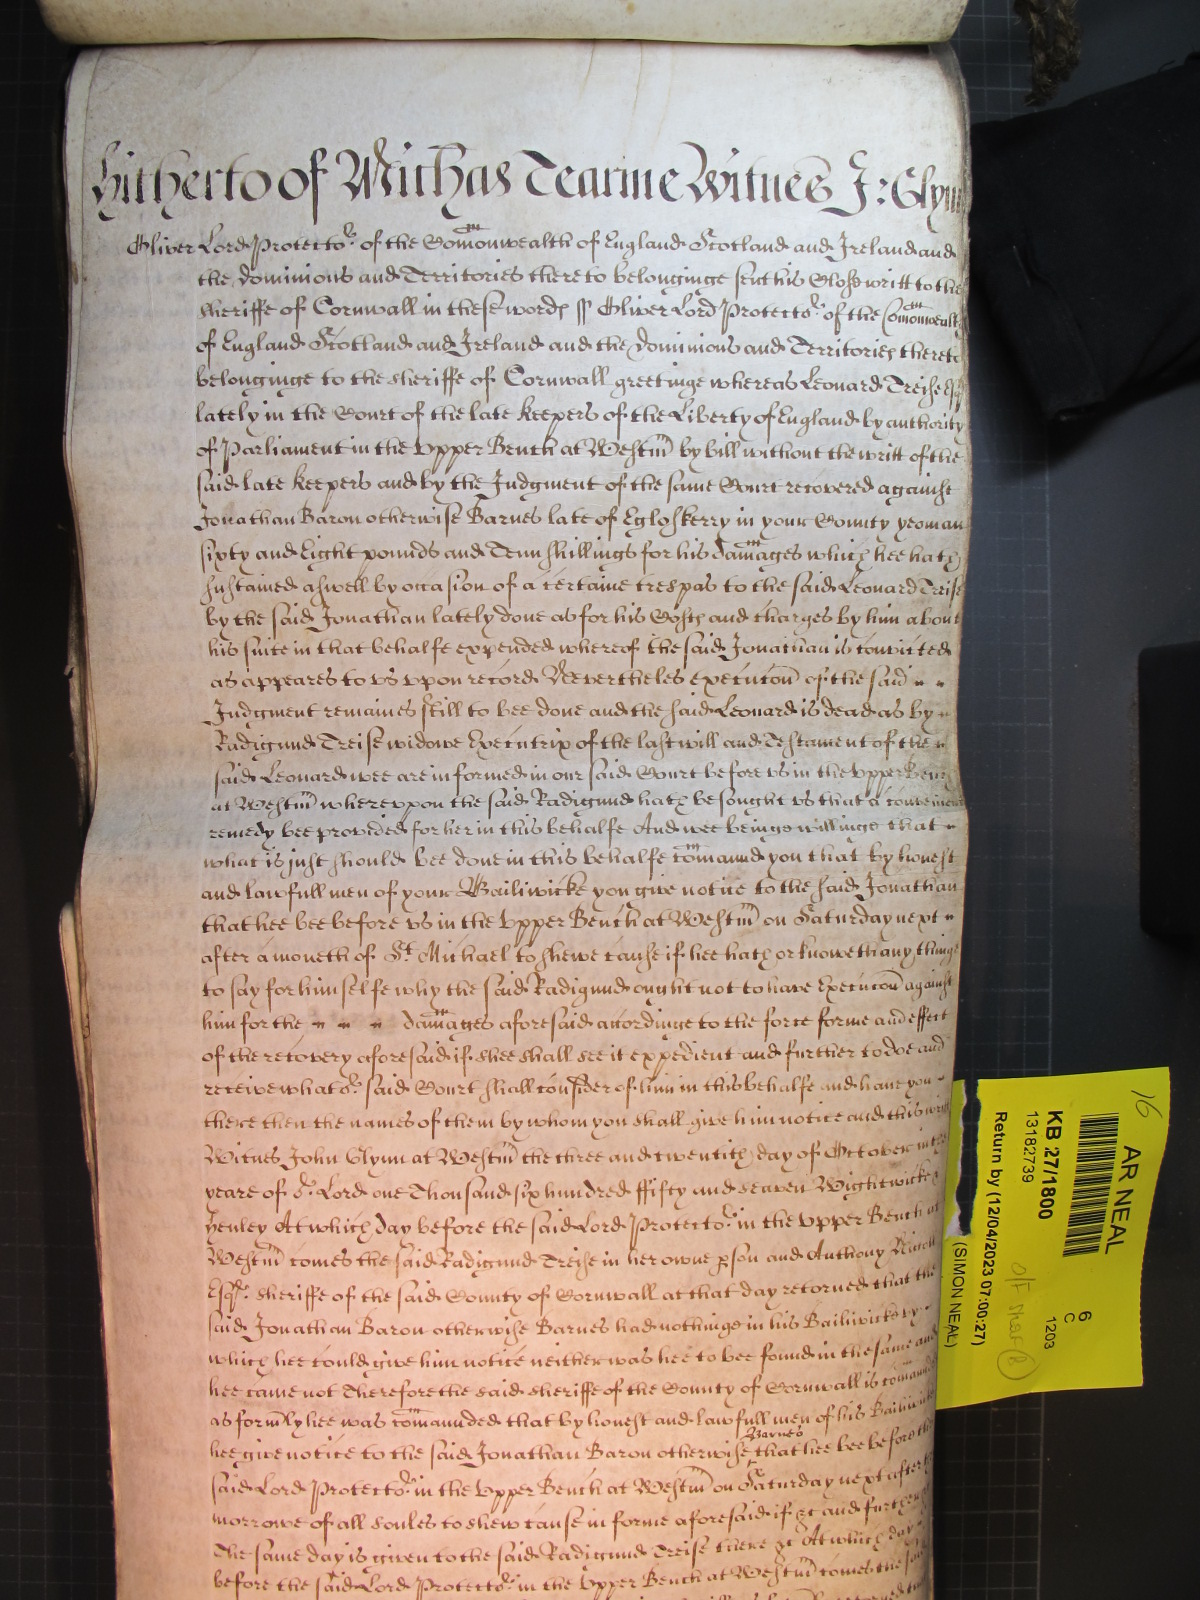 hitherto of Michas Tearme Witnes J: Glynn
Oliver Lord Protector of the Comonwealth of England Scotland and Ireland and
the dominions and Territories thereto belonginge sent his Close writt to the
Sheriffe of Cornwall in these words ss Oliver Lord Protector of the Comonwealth
of England Scotland and Ireland and the dominions and Territories thereto
belonginge to the sheriffe of Cornwall greetinge whereas Leonard Treise Esqr
lately in the Court of the late Keepers of the Liberty of England by authority
of Parliament in the Upper Bench at Westm by bill without the writt of the
said late Keepers and by the Judgment of the same Court recovered against
Jonathan Baron otherwise Barnes late of Egloskerry in your County yeoman
sixty and Eight pounds and Tenn shillings for his damages which hee hath
sustained aswell by occasion of a certaine trespas to the said Leonard Treise
by the said Jonathan lately done as for his Costs and charges by him about
his suite in that behalfe expended whereof the said Jonathan is convicted
as appeares to us upon record Nevertheles execucon of the said
Judgment remaines still to bee done and the said Leonard is dead as by
Radigund Treise widowe Executrix of the last will and Testament of the
said Leonard wee are informed in our said Court before us in the Upper Bench
at Westm whereupon the said Radigund hath besought us that a convenient
remedy bee provided for her in this behalfe And wee beinge willinge that
what is just should bee done in this behalfe comaund you that by honest
and lawfull men of your Bailiwicke you give notice to the said Jonathan
that hee bee before us in the Upper Bench at Westm on Saturday next
after a moneth of St Michael to shewe cause if hee hath or knoweth any thinge
to say for himselfe why the said Radigund ought not to have Execucon against
him for the damages aforesaid accordinge to the force forme and effect
of the recovery aforesaid if shee shall see it expedient and further to doe and
receive what or said Court shall consider of him in this behalfe and have you
there then the names of them by whom you shall give him notice and this writt
Witnes John Glynn at Westm the three and twentith day of October in the
yeare of or Lord one Thousand six hundred ffifty and seaven Wightwicke
Henley At which day before the said Lord Protector in the Upper Bench at
Westm comes the said Radigund Treise in her owne pson and Anthony Nicoll
Esqr sheriffe of the said County of Cornwall at that day retorned that the
said Jonathan Baron otherwise Barnes had nothinge in his Bailiwicke by
which hee could give him notice neither was hee to bee found in the same and
hee came not Therefore the said sheriffe of the County of Cornwall is comaunded
as formly hee was comaunded that by honest and lawfull men of his Bailiwicke
hee give notice to the said Jonathan Baron otherwise Barnes that hee bee before the
said Lord Protector in the Upper Bench at Westm on Saturday next after the
morrowe of all soules to shew cause in forme aforesaid if &c and further &c
The same day is given to the said Radigund Treise there &c At which day
before the said Lord Protector in the Upper Bench at Westm comes the said
16
AR NEAL
KB 27/1800
13182739
Return by (12/04/2023 07:00:27)
(SIMON NEAL)
6
C
1203